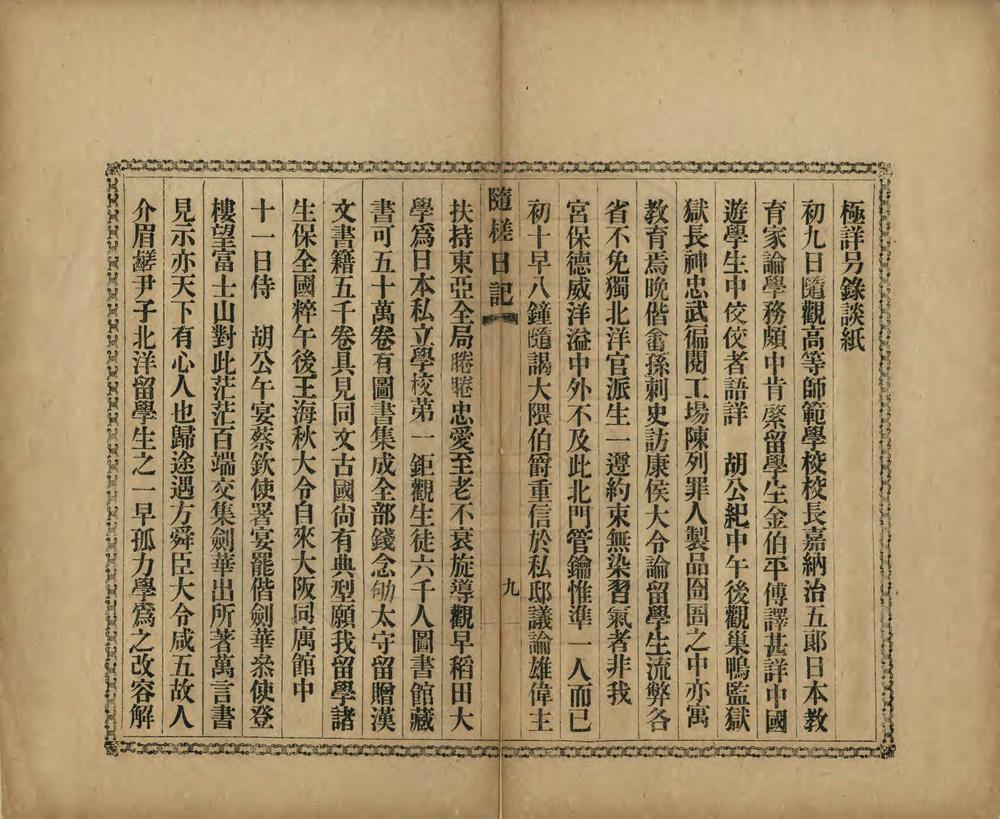 極詳另錄談紙
初九日隨觀高等師範學校校長嘉納治五郎日本教
育家論學務頗中肯綮留學生金伯平傳譯甚詳中國
遊學生中佼佼者語詳　胡公紀中午後觀巢鴨監獄
獄長神忠武徧閱工場陳列罪人製品囹圄之中亦寓
教育焉晚偕翕孫刺史訪康侯大令論留學生流弊各
省不免獨北洋官派生一遵約束無染習氣者非我
宮保德威洋溢中外不及此北門管鑰惟準一人而已
初十早八鐘隨謁大隈伯爵重信於私邸議論雄偉主
隨槎日記
九
扶持東亞全局睠睠忠愛至老不衰旋導觀早稻田大
學爲日本私立學校第一鉅觀生徒六千人圖書館藏
書可五十萬卷有圖書集成全部錢念劬太守留贈漢
文書籍五千卷具見同文古國尙有典型願我留學諸
生保全國粹午後王海秋大令自來大阪同寓館中
十一日侍　胡公午宴蔡欽使署宴罷偕劍華叅使登
樓望富士山對此茫茫百端交集劍華出所著萬言書
見示亦天下有心人也歸途遇方舜臣大令咸五故人
介眉嗣尹子北洋留學生之一早孤力學爲之改容解